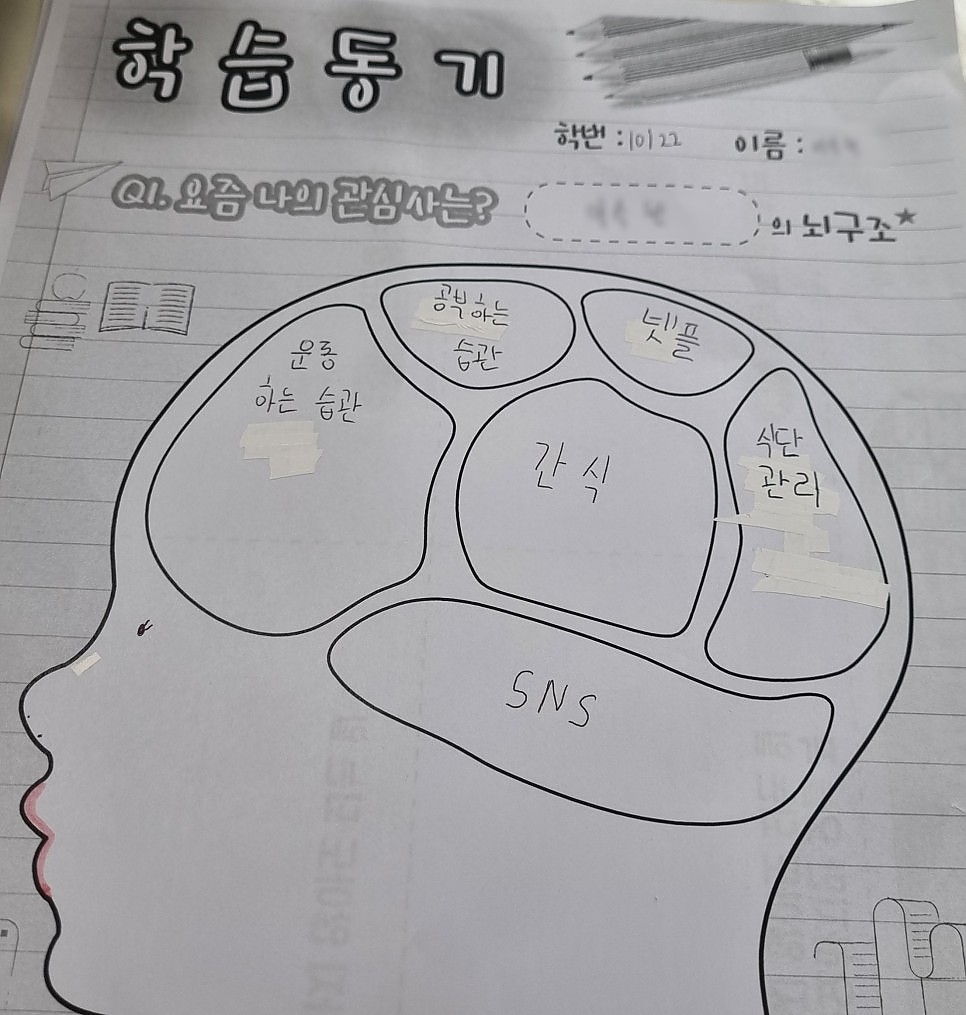 학습동기
학번 : 10122 이름 :
Q1. 요즘 나의 관심사는?
의 뇌구조★
공부하는
습관
넷플
운동
하는 습관
간식
식단
관리
SNS